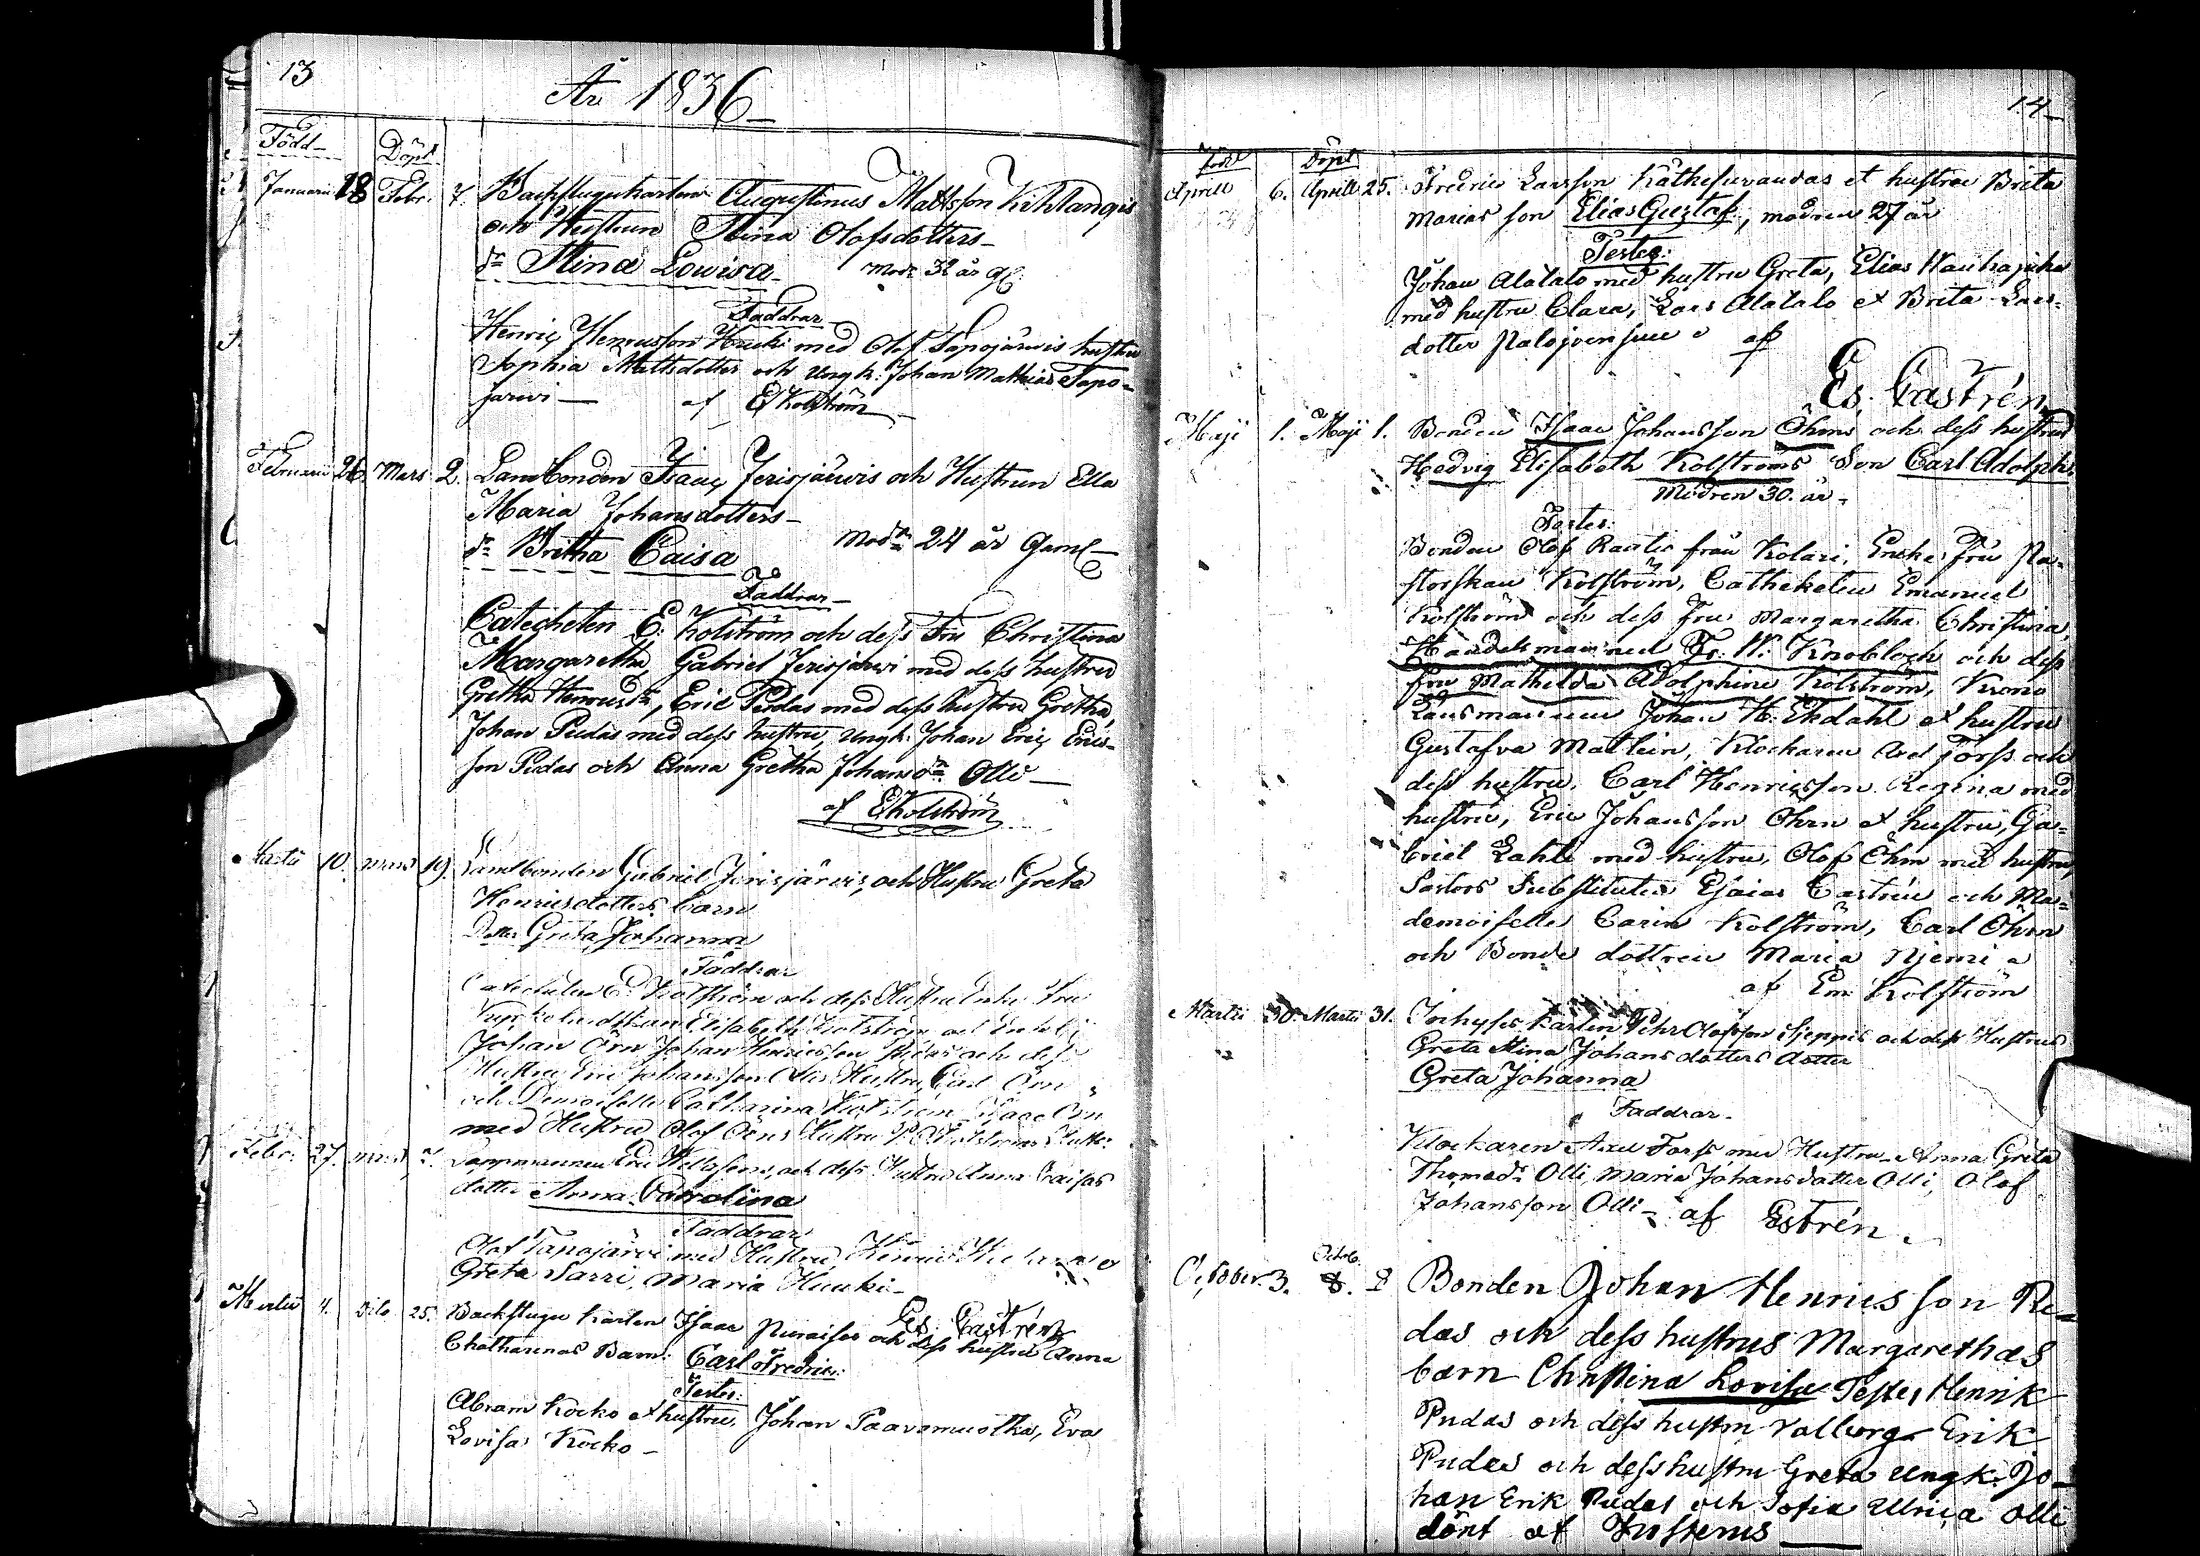 13
År 1836
Född Döpt
Januari 18 Febr. 7. Backstuguharen Augustinus Mattsson Kihlangis
och Hustrun Stina Olofsdotters
dr Stina Lowisa Modr 32 år gl.
Faddrar
Henric Henricsson Hucki med Olof Tapojärwis hustru
Sophia Mattsdotter och Ungk. Johan Mathias Tapo-
jarwi af E Kolström
Februarii 26. Mars 2. Landbonden Isaac Jerisjärwis och Hustrun Ella
Maria Johansdotters
dr Britha Caisa Modrn 24 år Gaml
Faddrar
Catecheten E. Kolström och dess Fru Christina
Margaretha, Gabriel Jerisjärwi med dess hustru
Gretha Henricsdr, Eric Pudas med dess hustru Gretha,
Johan Pudas med dess hustru, Ungk. Johan Eric Erics-
son Pudas och Anna Gretha Johansdr Olli
af E Kolström
Martii 10. mars 19. Landbonden Gabriel Jerisjärwis, och Hustru Greta
Henricsdotters barn
Dotter Greta Johanna
Faddrar
Catecheten E. Kolström och dess Hustru Enke Fru
Elisabeth Kolström
Johan Örn Johan Henricsson Pudas och dess
Hustru Eric Johansson Hustru Carl Örn
och Demoiselle Catharina Kolström Isaac Örn
med Hustru Olof Örns Hustru
Febr. 27. mars 7. Lappmannen Eric och dess Hustru Anna Caisas
dotter Anna Carolina
Faddrar
Olof Tapojärvi med Hustru, Henric
Greta Sarri, Maria Hucki
Es. Castrén
Martii 4. Dito 25. Backstugu karlen Isaac och dess hustru Anna
Chatharinas Barn: Carl Fredric
Testes:
Abram Kocko et hustru, Johan Paavomuotka, Eva
Lovisa Kocko
14
Född Döpt
Aprill 6. Aprill 25. Fredric Larsson Käthesuvandos et hustru Brita
Marias son Elias Gustaf, modren 27 år
Testes:
Johan Alatalo med hustru Greta, Elias
med hustru Clara, Lars Alatalo et Brita Lars-
dotter Palojoensuu af
Es. Castrén
Maji 1. Maji 1. Bonden Isaac Johansson Öhrns och dess hustrus
Hedvig Elisabeth Kolströms Son Carl Adolph.
Modren 30. år
Testes:
Bonden Olof Rautio från Kolari, Enke fru Pa-
storskan Kolström, Catheketen Emanuel
Kolström och dess fru Margaretha Christina,
Handelsmannen Fr. W. Knobloch och dess
fru Mathilda Adolphine Kolström, Krono
Länsmannen Johan H. Ekdahl et hustru
Gustafva Mathein, Klockaren Axel Forss och
dess hustru, Carl Henricsson Regina med
hustru, Eric Johansson Öhrn et hustru, Ga-
briel Lahti med hustru, Olof Öhrn med hustru,
Pastors Substituten Esaias Castrén och Ma-
demoiselle Carin Kolström, Carl Öhrn
och Bonde dottren Maria Njemi
af Em. Kolström
Martii 30. Martii 31. Inhyses karlen Pehr Olofsson Sjeppis och dess Hustrus
Greta Stina Johansdotters dotter
Greta Johanna
Faddrar
Klockaren Axel Forss med Hustru Anna Greta
Thomasdr Olli, Maria Johansdotter Olli, Olof
Johansson Olli af Estrén
October 3. Octob. 8. Bonden Johan Henricsson Pu-
das och dess hustrus Margarethas
barn Christina Lovisa Testes Henrik
Pudas och dess hustru Valborg Erik
Pudas och dess hustru Greta Ungk. Jo-
han Erik Pudas och Sofia Ulrica Olli
döpt af